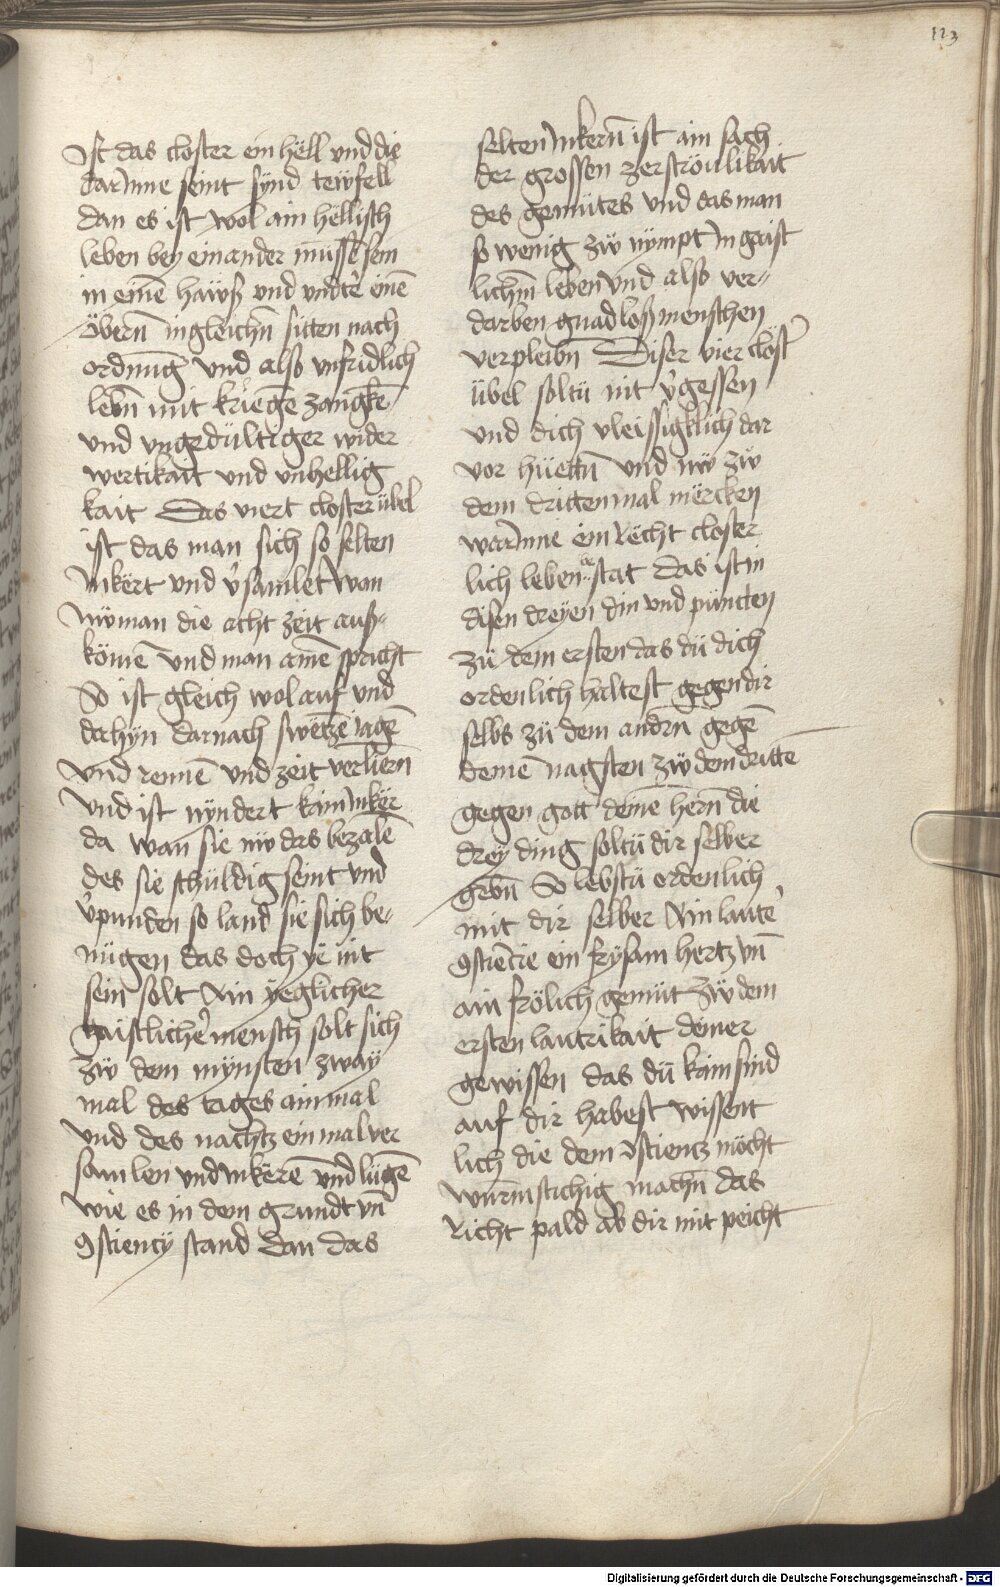 123
Ist das closter ein hëll vnd die
darJnne seint synd tewfell
dan es ist wol ain hellisch
leben bey einander müssē sein
in einē hawß vnd vndter einē
öbern̄ in gleichn̄ sitten nach
ordnūg vnd also vnfridlich
lebn̄ mit kriegē zangkē
vnd vngedültiger wider
wertikait vnd vnhellig
kait Das viert closter übel
ist das man sich so selten
Jnkërt vnd v̉samlet wan
nẅ man die acht zeit auß-
kömē vnd man amē spricht
So ist gleich wol auf vnd
dahyn darnach swetzē iagē
vnd rennē vnd zeit verliern̄
vnd ist nyndert kain Jnkër
da wan sie nẅ das bezalē
des sie schüldig seint vnd
v̉punden so land sie sich be-
nügen das doch ye nit
sein solt Ain yeglicher
gaistlicher mensch solt sich
zẅ dem mynsten zway
mal des tages ain mal
vnd des nachtz ein mal ver
samlen vnd Jnkërē vnd lügē
wie es in dem grundt vn̄
ꝯsciency stand dan das
selten Jnkern̄ ist ain sach
der grossen zerströulikait
des gemütes vnd das man
so wenig zẅ nympt Jn gaist
lichm̄ leben vnd also ver-
darben gnadloß menschen
verpleibn̄ Diser vier clost̉
übel soltu nit v̉gessen
vnd dich vleissigklich dar
vor hüettn̄ vnd nẅ zẅ
dem dritten mal mërcken
warJnne ein rëcht closter
lich leben stat das ist in
disen dreyen din vnd püncten
zü dem ersten das dü dich
ordenlich haltest gegen dir
selbs zü dem andrn̄ gegē
deinē nagsten zẅ dem drittē
gegen gott deinē hern̄ die
drey ding soltü dir selber
gebn̄ So lebstü ordenlich
mit dir selber Ain lautẻ
ꝯsciēcie ein frysam hertz vn̄
ain frölich gemüt Zẅ dem
ersten lautrikait deiner
gewissen das dü kain sünd
auf dir habest wissent
lich die dem ꝯscientz möcht
wurmstichig machn̄ das
richt pald ab dir mit peicht
Digitalisierung gefördert durch die Deutsche Forschungsgemeinschaft - DFG